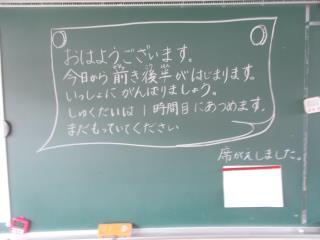 おはようございます。
今日から前き後半がはじまります。
いっしょにがんばりましょう。
しゅくだいは1時間目にあつめます。
まだもっていてください
席がえしました。